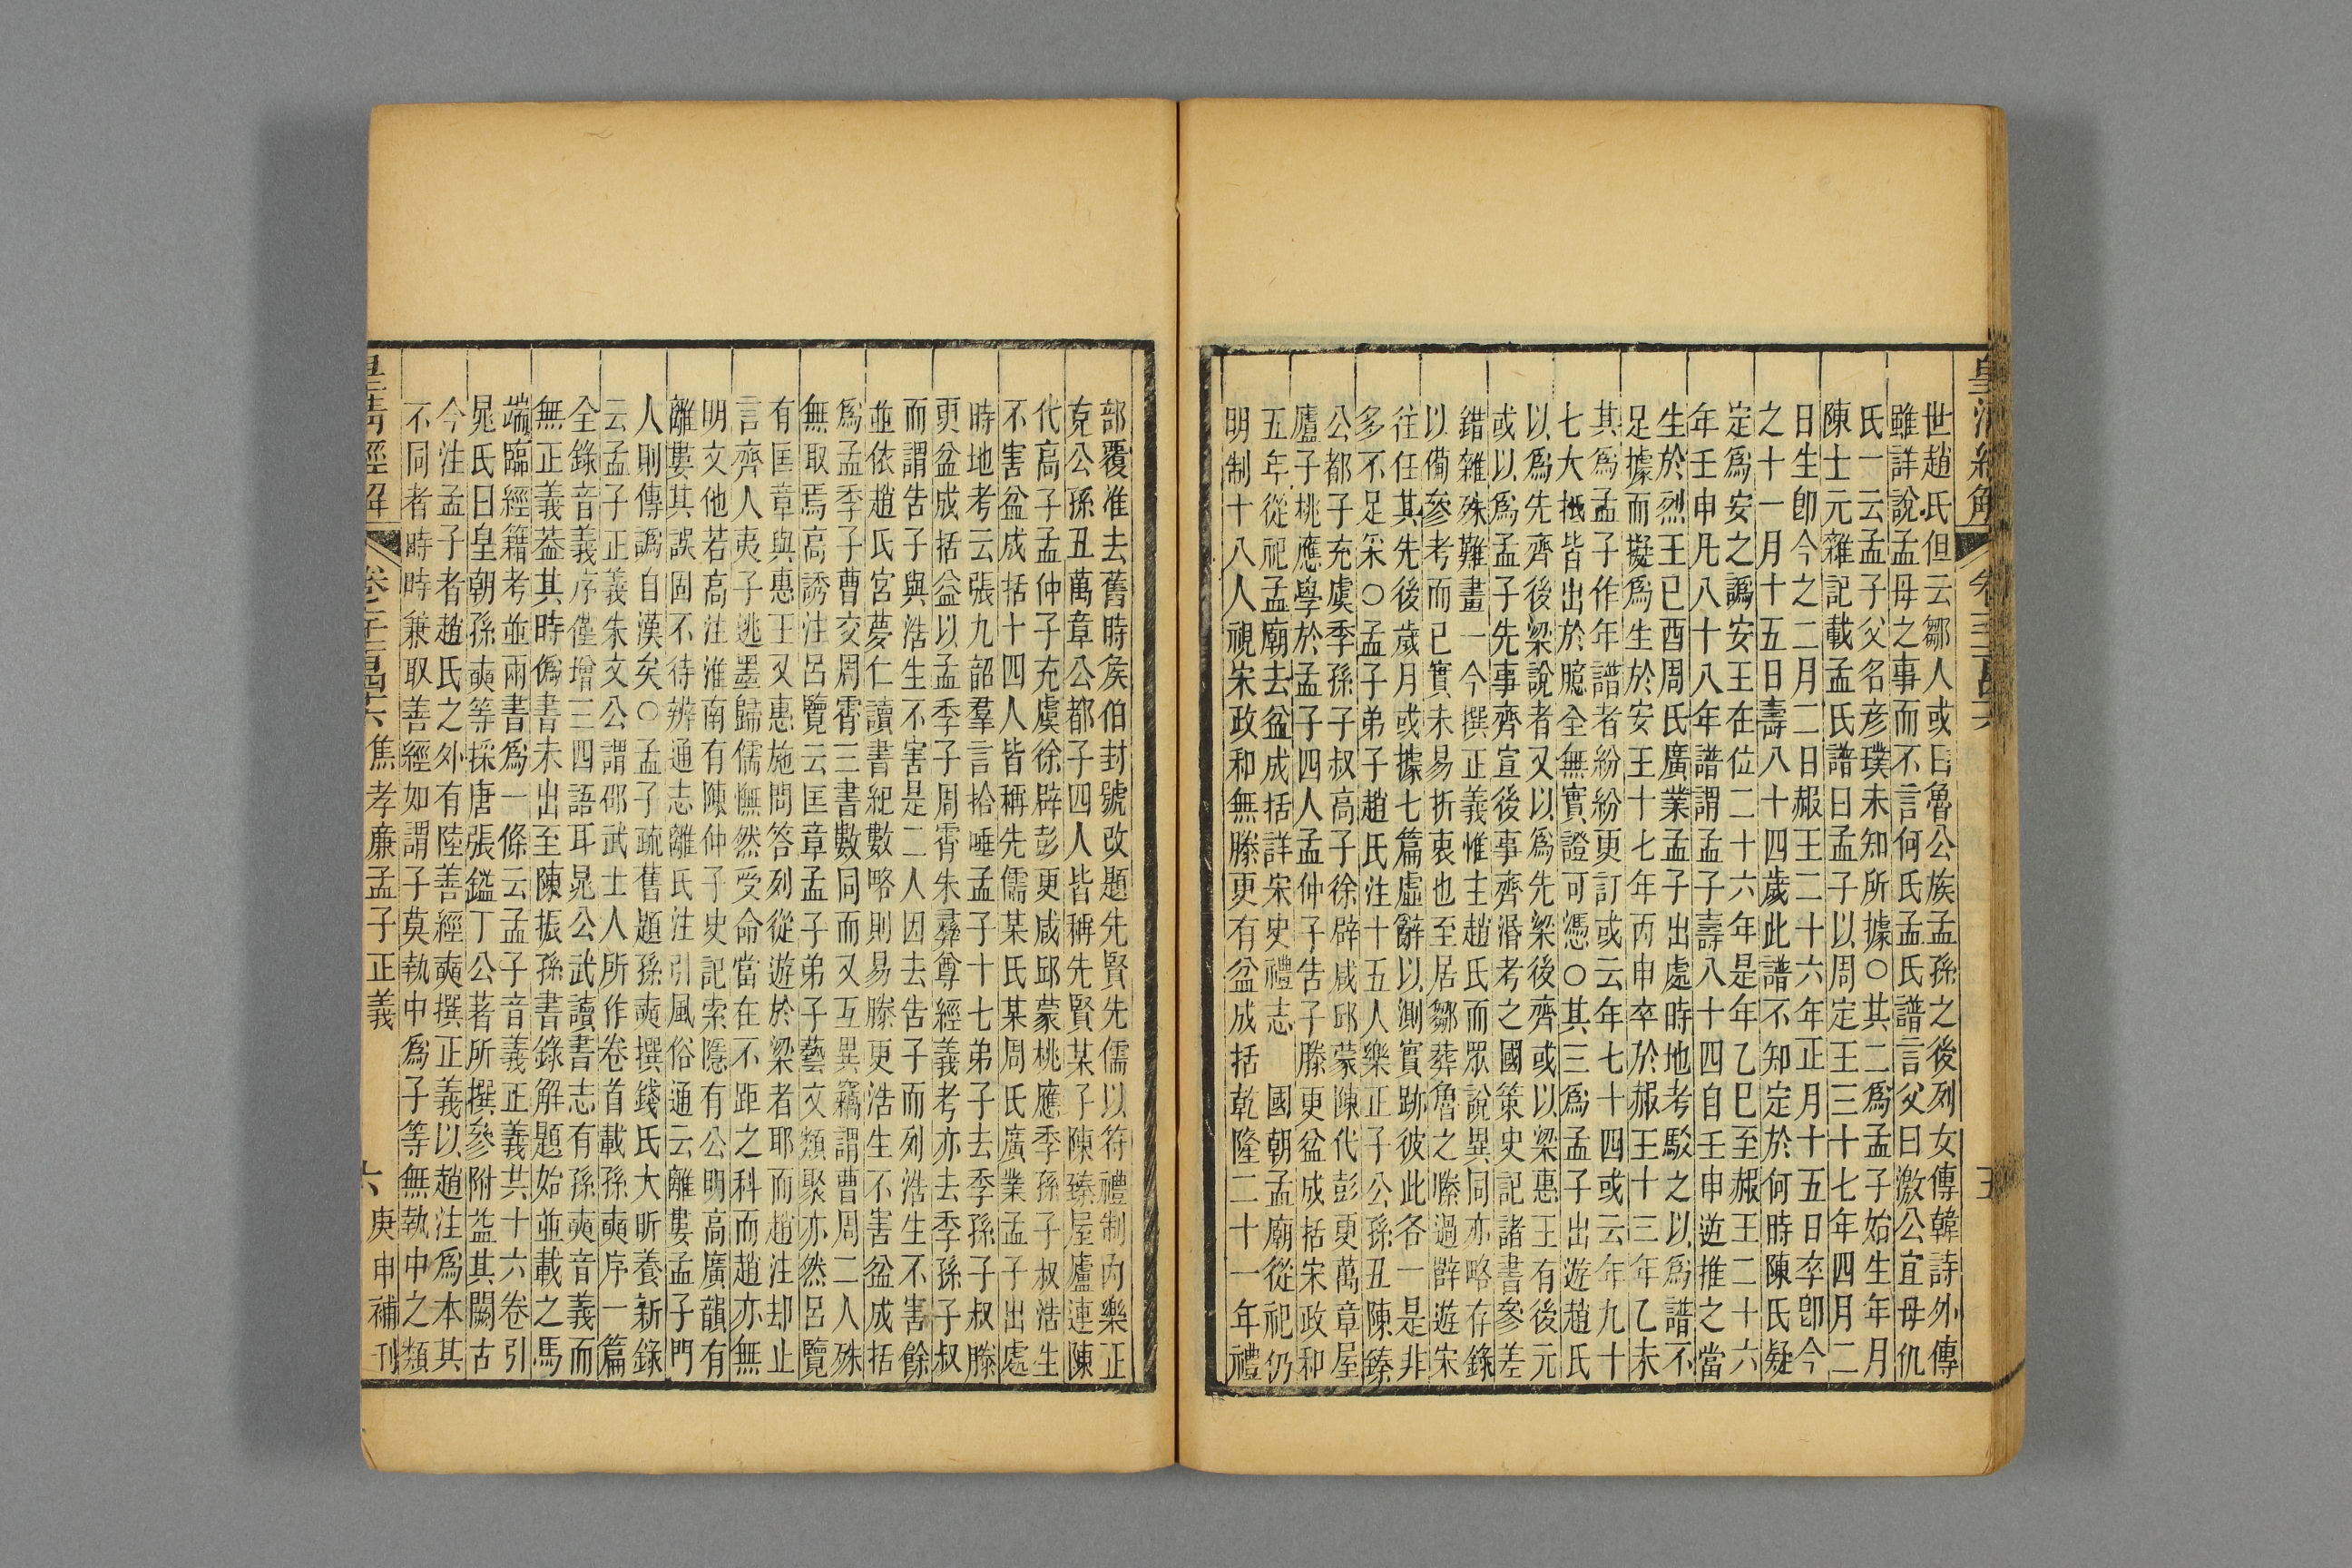 皇清經解
世趙氏但云鄒人或曰魯公族孟孫之後列女傳韓詩外傳
雖詳說孟母之事而不言何氏孟氏譜言父曰激公宜母仉
氏一云孟子父名彦璞未知所據○其二爲孟子始生年月
陳士元雜記載孟氏譜曰孟子以周定王三十七年四月二
日生卽今之二月二日赧王二十六年正月十五日卒卽今
之十一月十五日壽八十四歲此譜不知定於何時陳氏疑
定爲安之譌安王在位二十六年是年乙巳至赧王二十六
年壬申凡八十八年譜謂孟子壽八十四自壬申逆推之當
生於烈王已酉周氏廣業孟子出處時地考駁之以爲譜不
足據而擬爲生於安王十七年丙申卒於赧王十三年乙未
其爲孟子作年譜者紛紛更訂或云年七十四或云年九十
七大抵皆出於臆全無實證可憑○其三爲孟子出遊趙氏
以爲先齊後梁說者又以爲先梁後齊或以梁惠王有後元
或以爲孟子先事齊宣後事齊湣考之國策史記諸書參差
錯雜殊難畫一今撰正義惟主趙氏而眾說異同亦略存錄
以備參考而已實未易折衷也至居鄒葬魯之滕過薛遊宋
往任其先後歲月或據七篇虛辭以測實跡彼此各一是非
多不足采○孟子弟子趙氏注十五人樂正子公孫丑陳臻
公都子充虞季孫子叔高子徐辟咸邱蒙陳代彭更萬章屋
廬子桃應學於孟子四人孟仲子告子滕更盆成括宋政和
五年從祀孟廟去盆成括詳宋史禮志 國朝孟廟從祀仍
明制十八人視宋政和無滕更有盆成括乾隆二十一年禮
部覆准去舊時侯伯封號改題先賢先儒以符禮制內樂正
克公孫丑萬章公都子四人皆稱先賢某子陳臻屋廬連陳
代高子孟仲子充虞徐辟彭更咸邱蒙桃應季孫子叔浩生
不害盆成括十四人皆稱先儒某氏某周氏廣業孟子出處
時地考云張九韶羣言拾唾孟子十七弟子去季孫子叔滕
更盆成括益以孟季子周霄朱彝尊經義考亦去季孫子叔
而謂告子與浩生不害是二人因去告子而列浩生不害餘
並依趙氏宮夢仁讀書紀數略則易滕更浩生不害盆成括
爲孟季子曹交周霄三書數同而又互異竊謂曹周二人殊
無取焉高誘注呂覽云匡章孟子弟子藝文類聚亦然呂覽
有匡章與惠王又惠施問答列從遊於梁者耶而趙注却止
言齊人夷子逃墨歸儒憮然受命當在不距之科而趙亦無
明文他若高注淮南有陳仲子史記索隱有公明高廣韻有
離婁其誤固不待辨通志離氏注引風俗通云離婁孟子門
人則傳譌自漢矣○孟子疏舊題孫奭撰錢氏大昕養新錄
云孟子正義朱文公謂邵武士人所作卷首載孫奭序一篇
全錄音義序僅增三四語耳晁公武讀書志有孫奭音義而
無正義葢其時僞書未出至陳振孫書錄解題始並載之馬
端臨經籍考並兩書爲一條云孟子音義正義共十六卷引
晁氏曰皇朝孫奭等採唐張鎰丁公著所撰參附益其闕古
今注孟子者趙氏之外有陸善經奭撰正義以趙注爲本其
不同者時時兼取善經如謂子莫執中爲子等無執中之類
焦孝廉孟子正義
庚申補刊